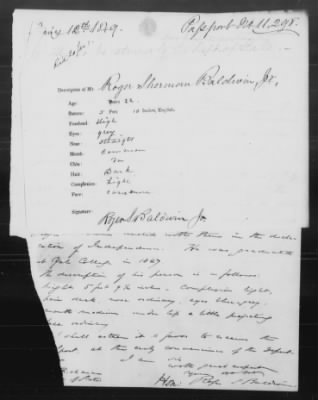 12th 1849.
Passport No. 11,298.
Description of Mr. Roger Sherman Baldwin Jr.
Age: Years 22.
Stature: 5 Feet 10 Inches, English.
Forehead: High
Eyes: grey
Nose: straight
Mouth: Common
Chin: Do
Hair: Dark
Complexion: Light
Face:
Signature: Roger S Baldwin Jr
with them in the decla-
ration of Independence. He was graduated
at Yale College in 1847
The description of his person is as follows:
height 5 feet 9 ¾ inches - Complexion light,
hair dark, nose ordinary, eyes blue grey,
mouth medium under lip a little projecting
ordinary
I shall esteem it a favor to receive the
at the early convenience of the Depart
I am
with great respect
Roger S Baldwin